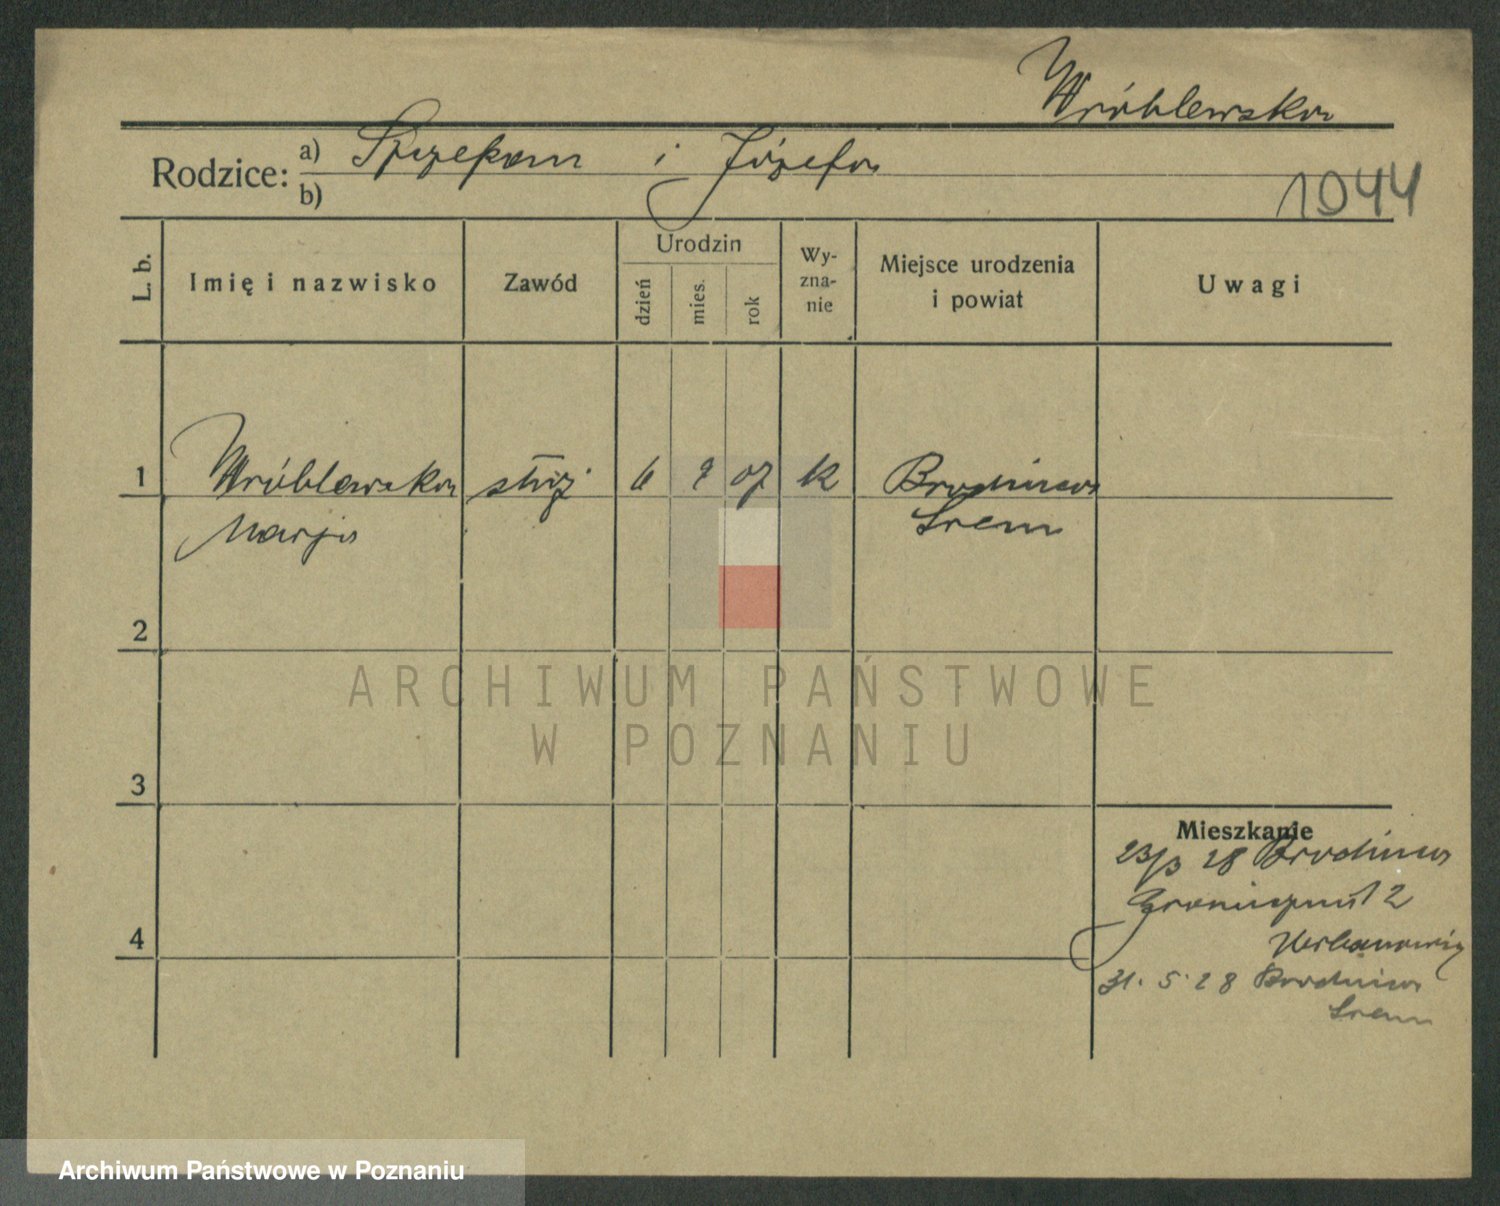 Wróblewska
Rodzice: a) Szczepan i Józefa
b)
1944
L. b.
Imię i nazwisko
Zawód
Urodzin
dzień
mies.
rok
Wy-
zna-
nie
Miejsce urodzenia
i powiat
Uwagi
1
Wróblewska
Marja
służ
6
9
07
k
Brodnica
Śrem
2
3
4
Mieszkanie
23/3 28 Brodnica
Graniczna 2
31. 5. 28 Brodnica
Śrem
ARCHIWUM PAŃSTWOWE
W POZNANIU
Archiwum Państwowe w Poznaniu